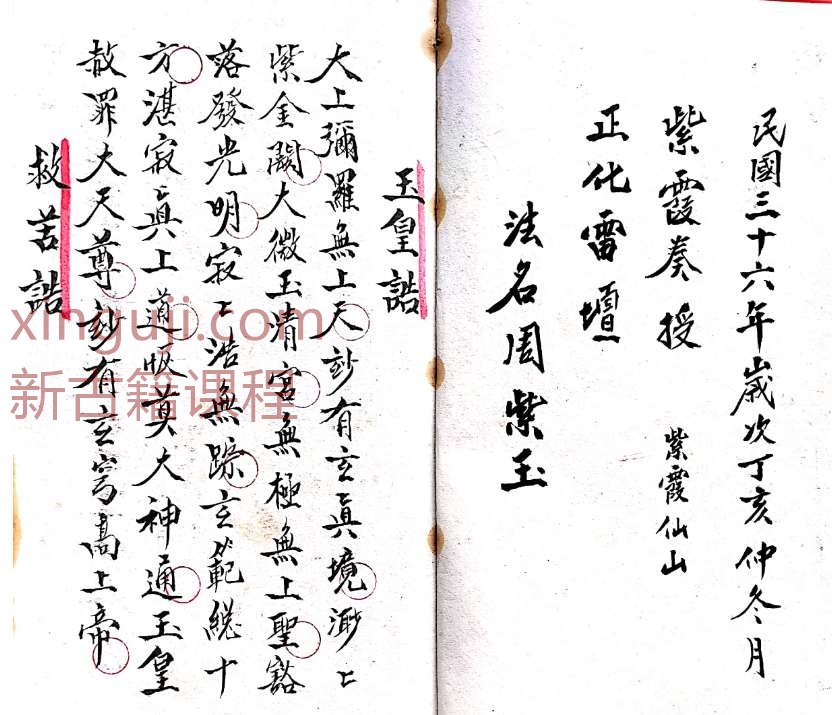 民國三十六年歲次丁亥仲冬月
紫霞奏授 紫霞仙山
正化雷壇
法名周紫玉
玉皇誥
大上彌羅無上天玅有玄眞境渺〻
紫金闕大微玉清宮無極無上聖豁
落發光明寂〻浩無踪玄範総十
方湛寂眞上道恢莫大神通玉皇
赦罪大天尊玅有玄穹高上帝
救苦誥
xinguji.com
新古籍课程